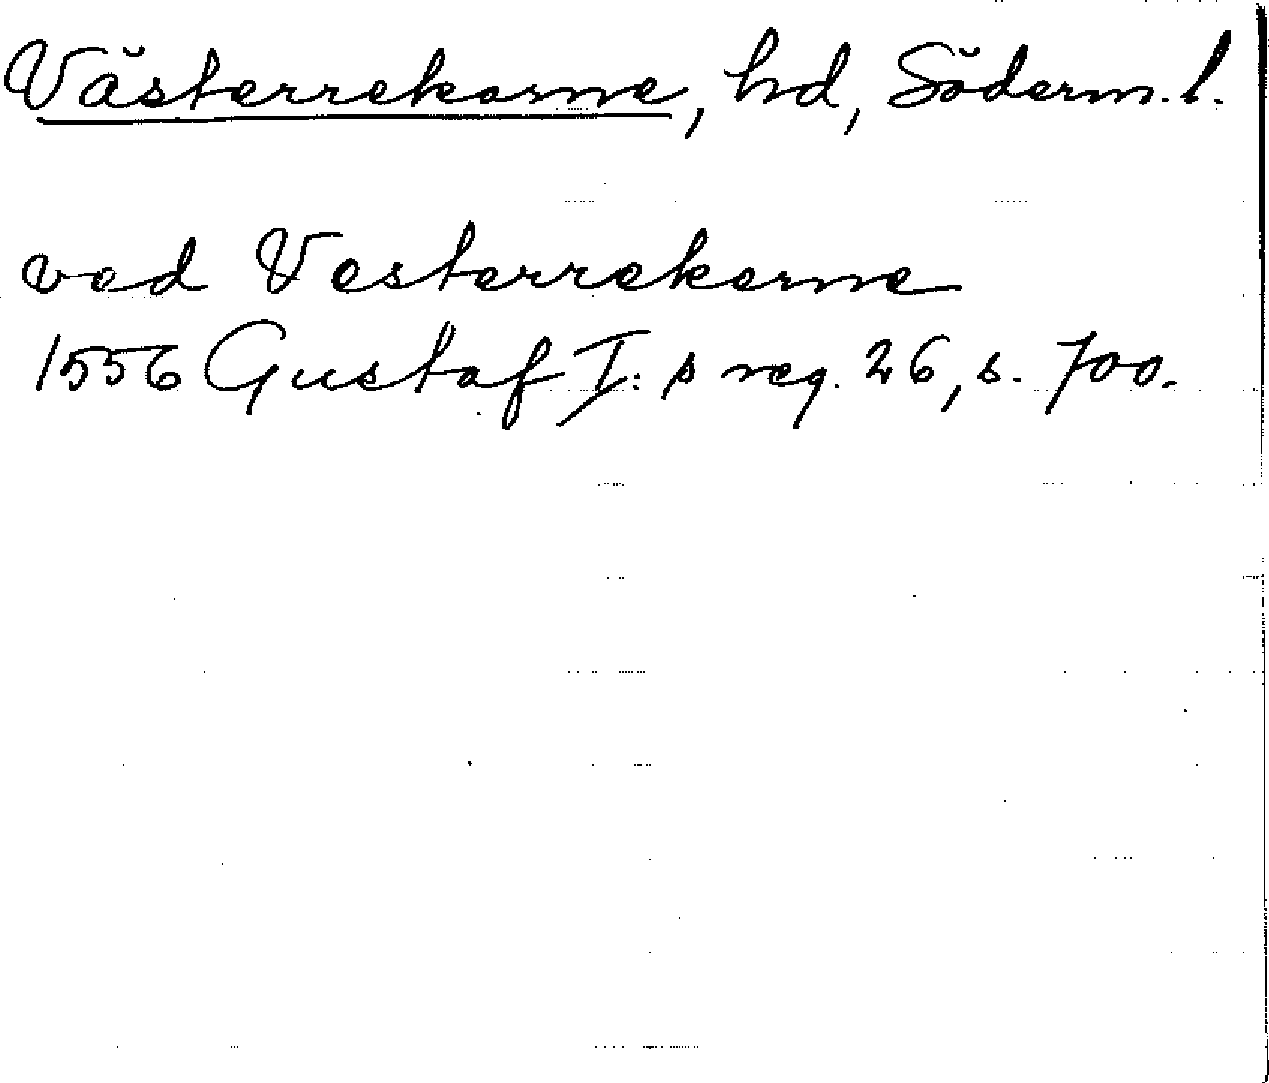 Västerrekarne, hd, Söderm. l.
ved Vesterrekerne
1556 Gustaf I: s reg. 26, s. 700.